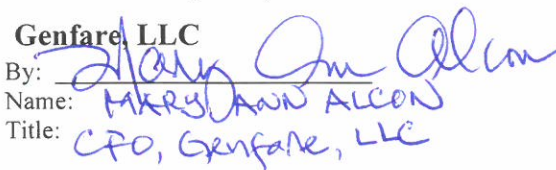 Genfare, LLC
By: Mary Ann Alcon
Name: MARY ANN ALCON
Title: CFO, Genfare, LLC